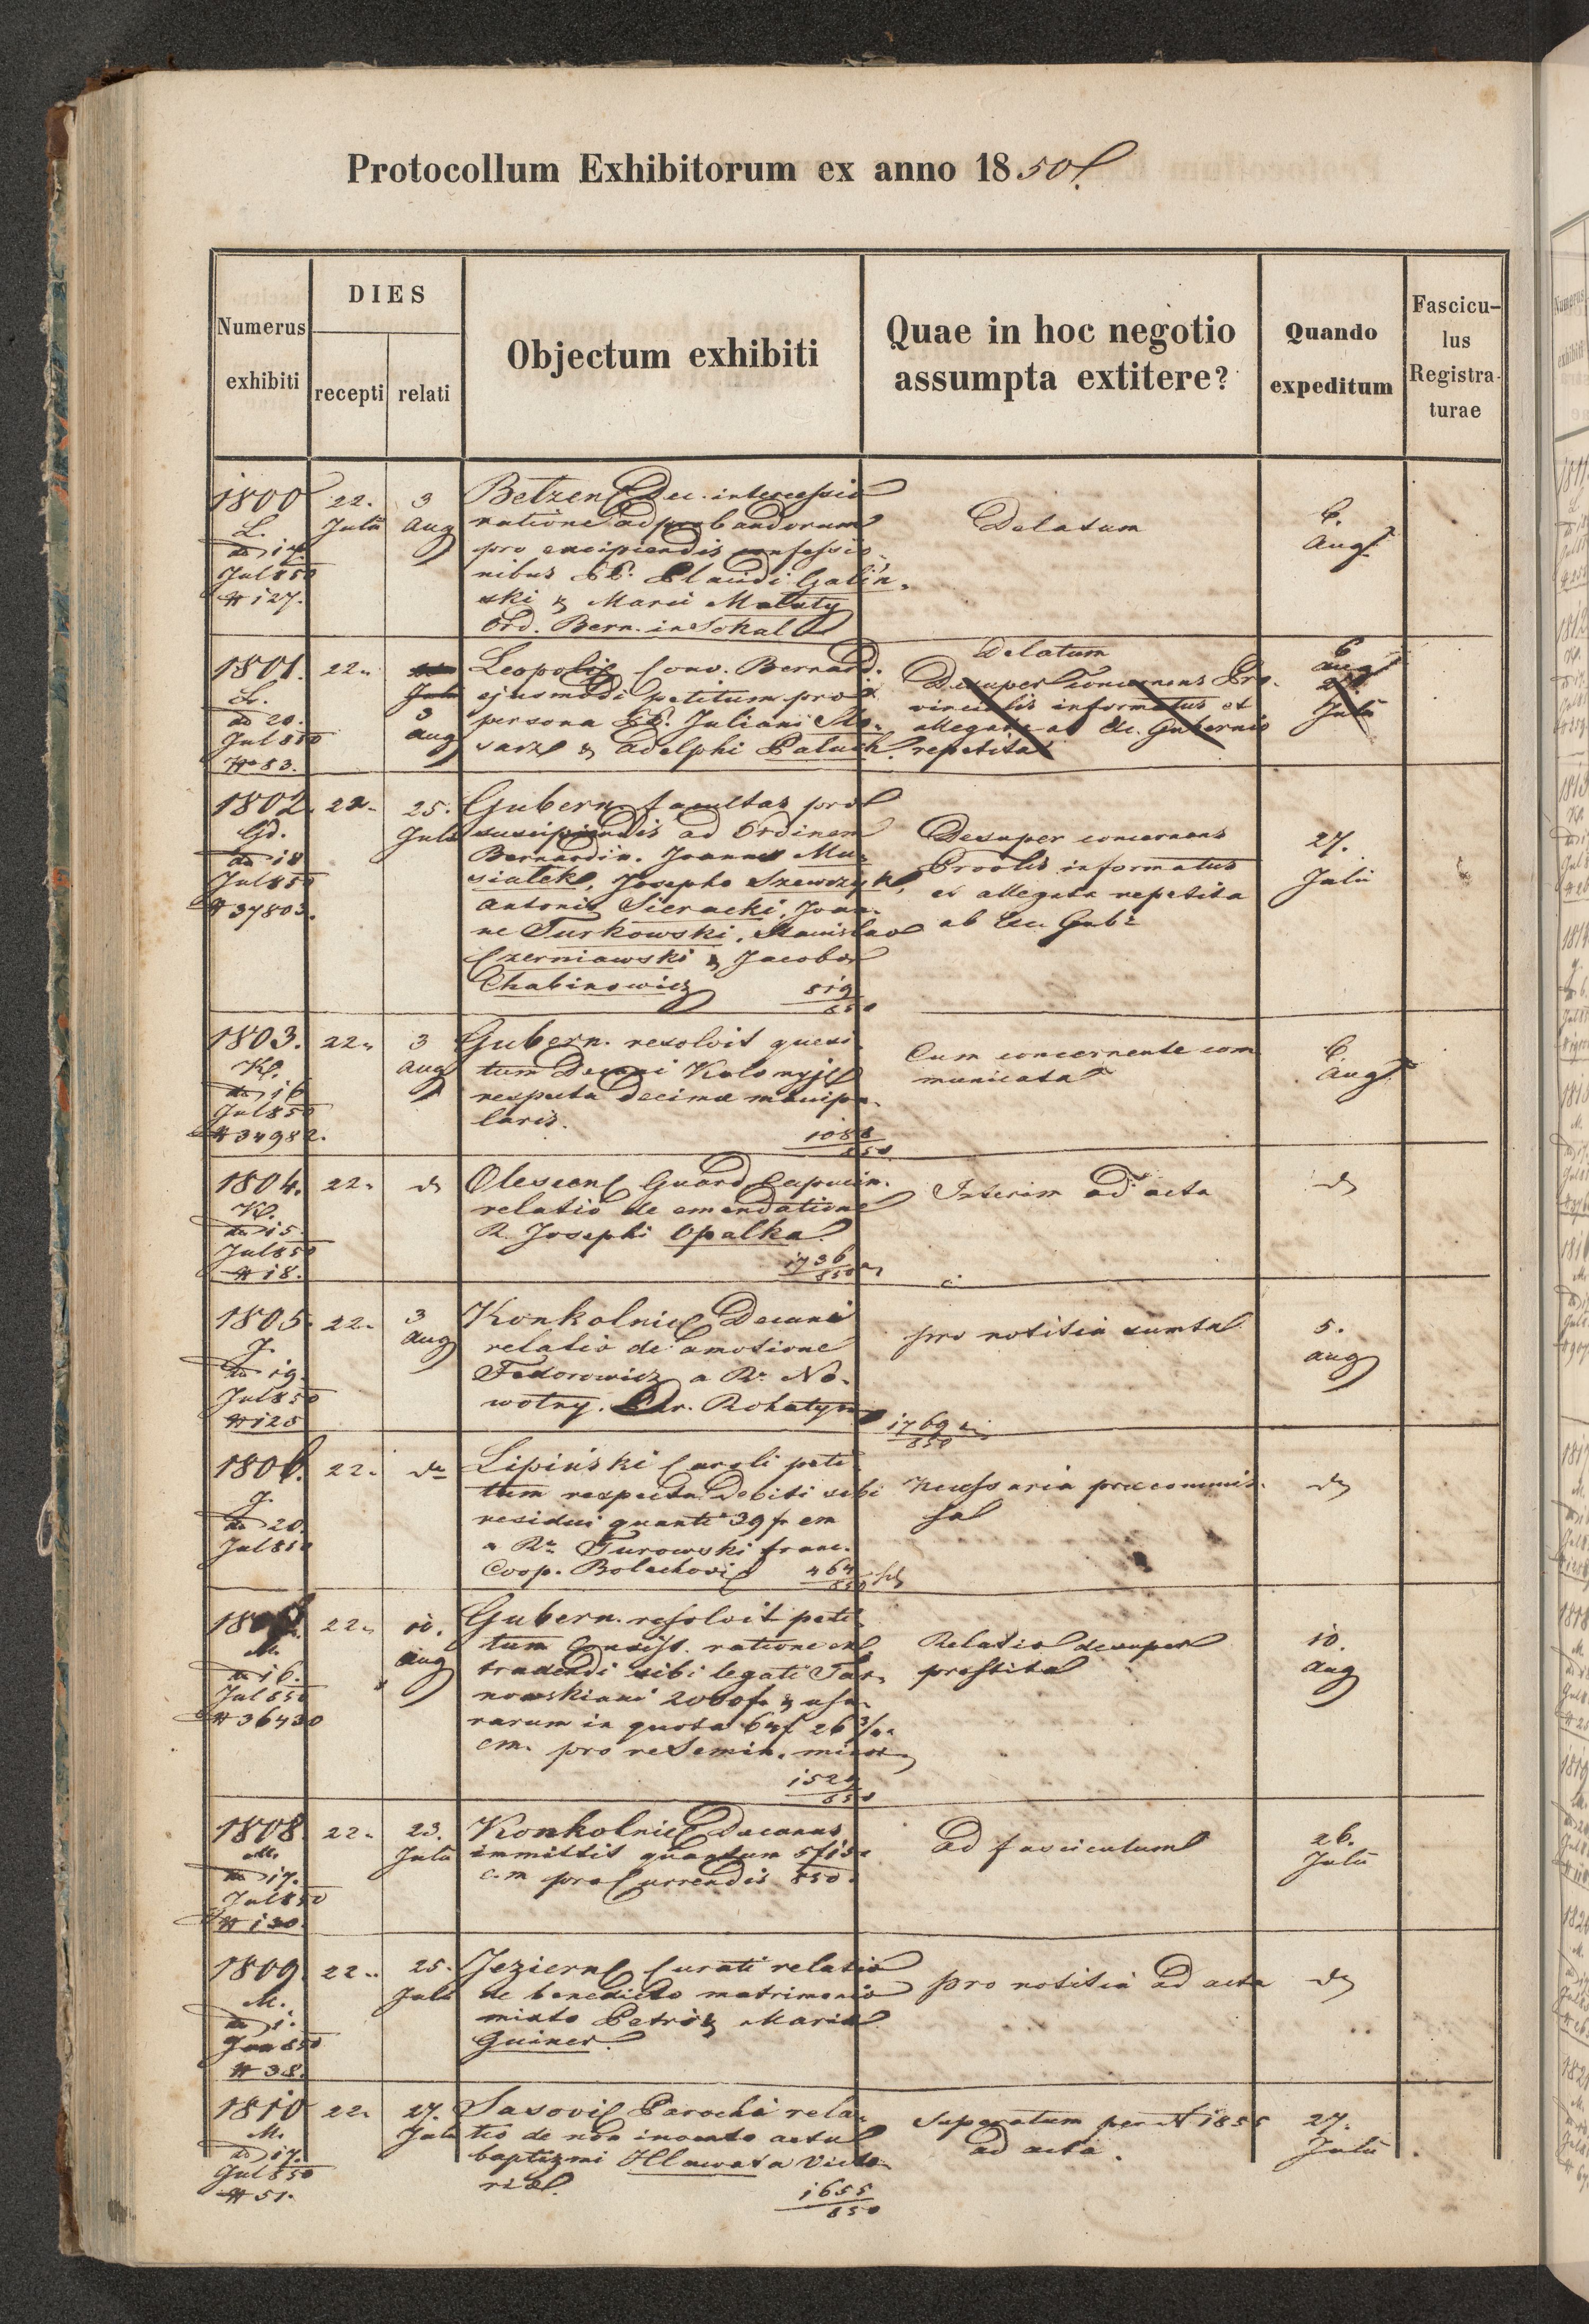 Protocollum Exhibitorum ex anno 1850.
Numerus exhibiti
DIES
recepti
relati
Objectum exhibiti
Quae in hoc negotio assumpta extitere?
Quando expeditum
Fascicu-
lus
Registra-
turae
1800
L.
dd 17
Jul 850
# 127.
22.
Julii
3
Aug
Betzens Dec. intercessio
ratione adprobandorum
pro excipiendis confessio-
nibus PP. Plaudi Galin-
ski & Marii Matuty
Ord. Bern. in Sokal
Delatum
6.
Aug.
1801.
L.
dd 20.
Jul 850
# 83.
22.
Julii
3
Aug
Leopolis Conv. Bernard.
ejusmodi petitum pro
persona PP. Juliani Slo-
sarz & Adelphi Paluch.
Delatum
Desuper concernens Pro-
vincialis informatus et
allegata ab Exc. Gubernio
repetita
6
Aug
Julii
1802.
Gd.
dd 18
Jul 850
# 37803.
22.
25.
Julii
Gubern. facultas pro
suscipiendis ad Ordinem
Bernardin. Joanne Mu-
siatek, Josepho Szewczyk,
Antonio Sieracki, Joan-
ne Turkowski, Stanislao
Czerniawski & Jacobo
Chabinowicz
819
850
Desuper concernens
Provlis informatus
et allegata repetita
ab Exc. Gub.
27.
Julii
1803.
K.
dd 16
Jul 850
# 34982.
22.
3
Aug
Gubern. resolvit quesi-
tum Decani Kolomyje
respectu decimae manipu-
laris.
1088
850
Cum concernente com
municata
6.
Aug.
1804.
K.
dd 15.
Jul 850
# 18.
22.
do
Olescens Guard. Capucin.
relatio de emendatione
R. Josephi Opalka
1736
850
Interim ad acta
do
1805.
J.
dd 19.
Jul 850
# 125
22.
3
Aug
Konkolnic Decani
relatio de amotione
Fedorowicz a R. No-
wotny. Adr. Rohatyn
1769
850
pro notitia sumta
5.
Aug
1806.
J.
dd 20.
Jul 850
22.
do
Lipiński Caroli peti-
tum respectu debiti sibi
residui quanti 39 fr cm
a R. Turowski franc.
Coop. Bolechovi
464
850
Necessaria praecommis-
sa
do
1807.
M.
dd 16.
Jul 850
# 36430
22.
10.
Aug
Gubern. resolvit peti-
tum Consist. ratione ex
tradendi sibi legati Tar-
nowskiani 2000 fr & usu-
rarum in quota 64 f 26 3/4
cm. pro re Semin. minor.
1529
850
Relatio desuper
prestita
10.
Aug
1808.
M.
dd 17.
Jul 850
# 130.
22.
23.
Julii
Konkolnic Decanus
immittit quantum 5 f 15
c.m pro Currendis 850.
ad fasciculum
26.
Julii
1809.
M.
dd 1.
850
# 38.
22.
25.
Julii
Jeziern Curati relatio
de benedicto matrimonio
mixto Petri & Maria
Guiner.
pro notitia ad acta
do
1810
M.
dd 17.
Jul 850
# 51.
22.
27.
Julii
Sasovie Parochi rela-
tio de non invento actu
baptizmi Hlawata Victo-
riae.
1655
850
Superatum per # 1855
ad acta.
27.
Julii